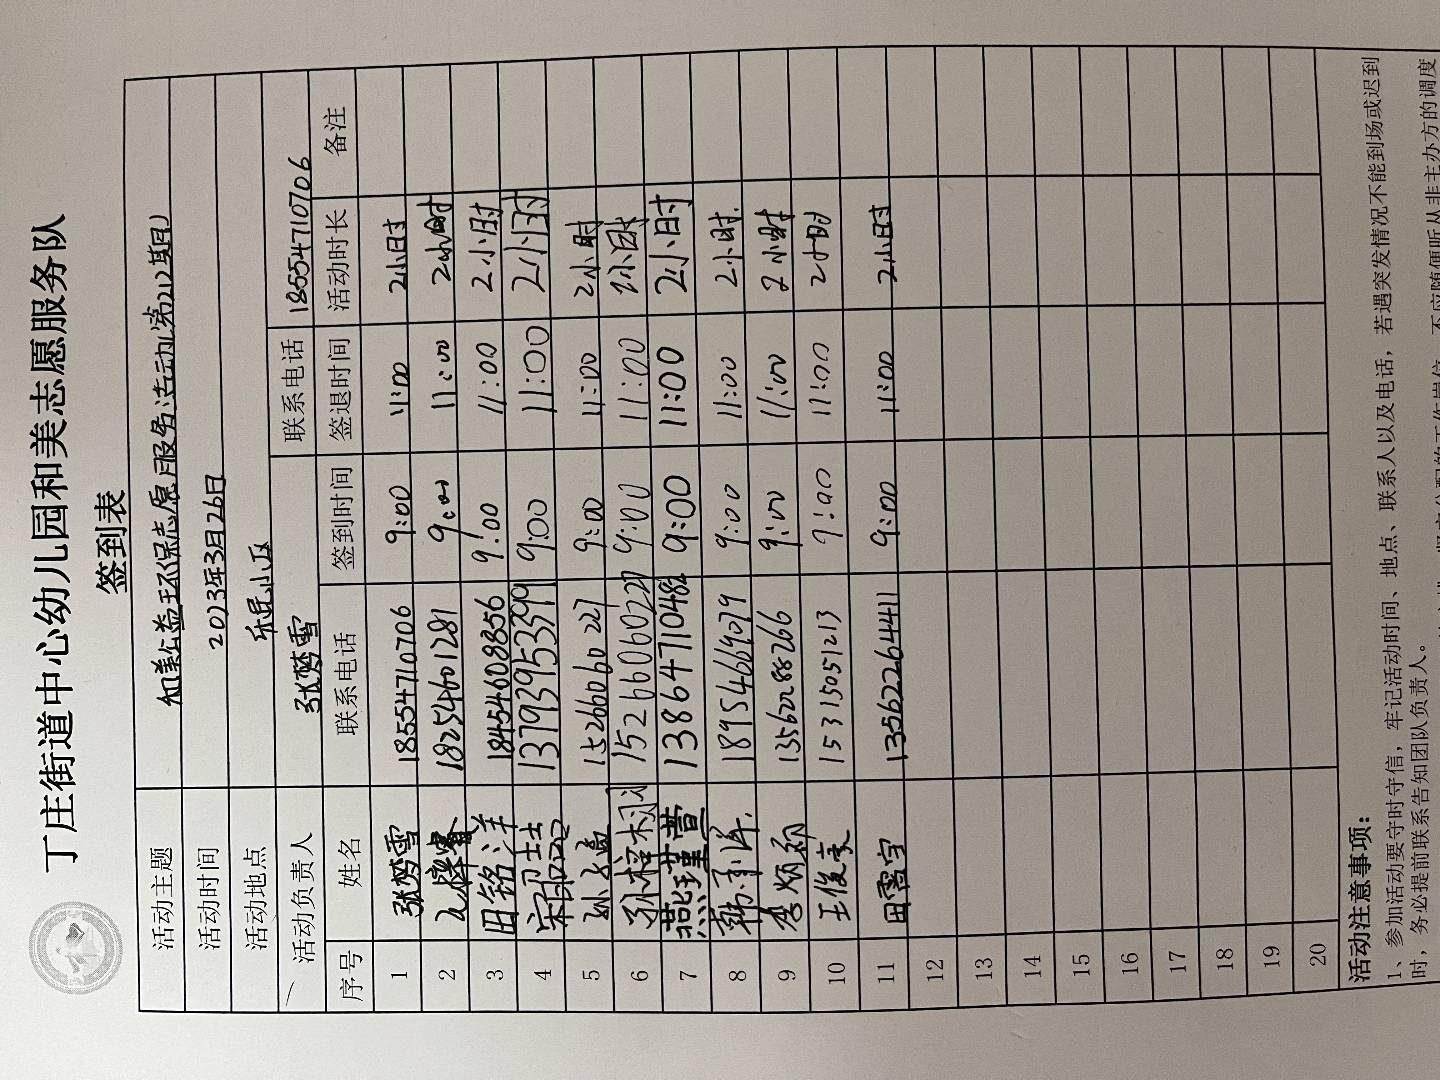 丁庄街道中心幼儿园和美志愿服务队
签到表
活动主题 和美公益环保志愿服务活动(第212期)
活动时间 2023年3月26日
活动地点 乐民小区
活动负责人 张梦雪 联系电话 18554710706
序号 姓名 联系电话 签到时间 签退时间 活动时长 备注
1 张梦雪 18554710706 9:00 11:00 2小时
2 18254601281 9:00 11:00 2小时
3 田铭洋 18454608856 9:00 11:00 2小时
4 宋 13793953799 9:00 11:00 2小时
5 孙 15266060227 9:00 11:00 2小时
6 孙梓 15266060227 9:00 11:00 2小时
7 燕瑾萱 13864710482 9:00 11:00 2小时
8 韩 18954664079 9:00 11:00 2小时
9 李炳 13562288266 9:00 11:00 2小时
10 王俊豪 15315051213 9:00 11:00 2小时
11 田雪宇 13562264411 9:00 11:00 2小时
12
13
14
15
16
17
18
19
20
活动注意事项：
1、参加活动要守时守信，牢记活动时间、地点、联系人以及电话，若遇突发情况不能到场或迟到
时，务必提前联系告知团队负责人。
不应随便听从非主办方的调度